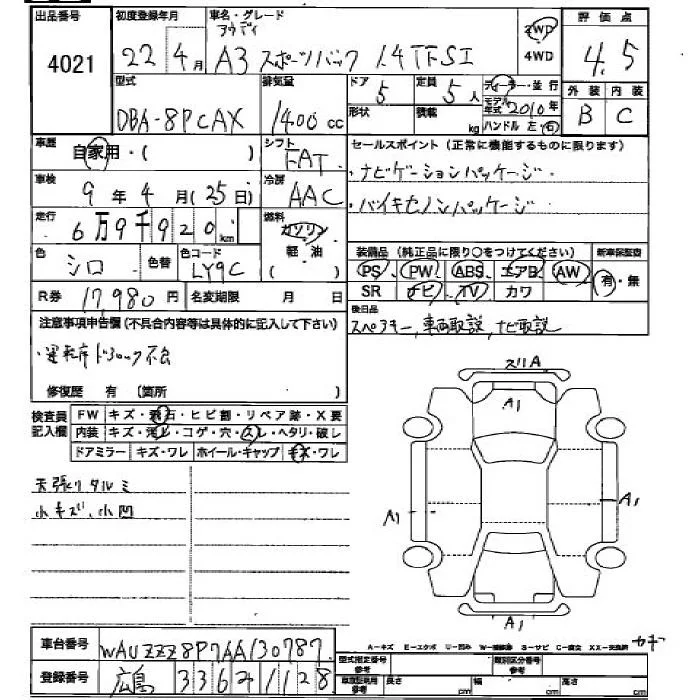 出品番号 初度登録年月 車名・グレード 評価点
アウディ 2WD
4021 22年4月 A3 スポーツバック 1.4 TFSI 4WD 4.5
型式 排気量 ドア 定員 ディーラー・並行 外装 内装
DBA-8PCAX 1400cc 5 5人 モデル年式 2010年 B C
形状 積載 kg ハンドル 左・右
車歴 自家用・( ) シフト FAT セールスポイント (正常に機能するものに限ります)
車検 9年4月(25日) 冷房 AAC ・ナビゲーションパッケージ・
・バイキセノンパッケージ・
走行 6万9千920km 燃料 ガソリン
軽・油
( )
装備品 (純正品に限り○をつけてください) 新車保証書
色 シロ 色替 色コード LY9C PS、PW、ABS、エアB、AW 有・無
R券 17,980円 名変期限 月 日 SR ナビ TV カワ
後日品
注意事項申告欄 (不具合内容等は具体的に記入して下さい) スペアキー, 車両取説, ナビ取説
・運転席ドアロック不良
修復歴 有 〔箇所 〕
検査員記入欄 FW キズ・飛石・ヒビ割・リペア跡・X要
内装 キズ・汚れ・コゲ・穴・スレ・ヘタリ・破レ
ドアミラー キズ・ワレ ホイール・キャップ キズ・ワレ
スリA
A1
天張りタルミ
小キズ、小凹
A1 A1
A1
A-キズ E-エクボ U-凹み W-補修跡 S-サビ C-腐食 XX-交換済
車台番号 WAUZZZ8P7AA130787
型式指定番号 参考 類別区分番号 参考
登録番号 広島 336 る 1128
車庫証明用 参考 長さ cm 幅 cm 高さ cm